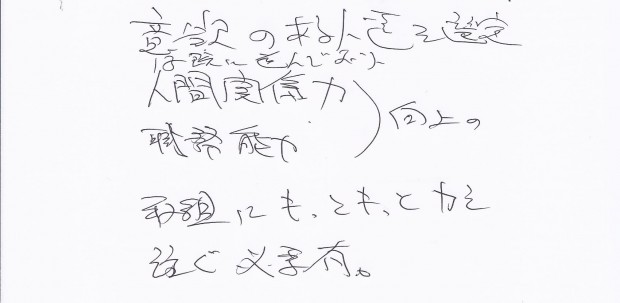 意欲のある人達を選定
に並んでおり
人間関係力
職務能力 ) 向上の
取組にも、ともっと力を
注ぐ必要有。